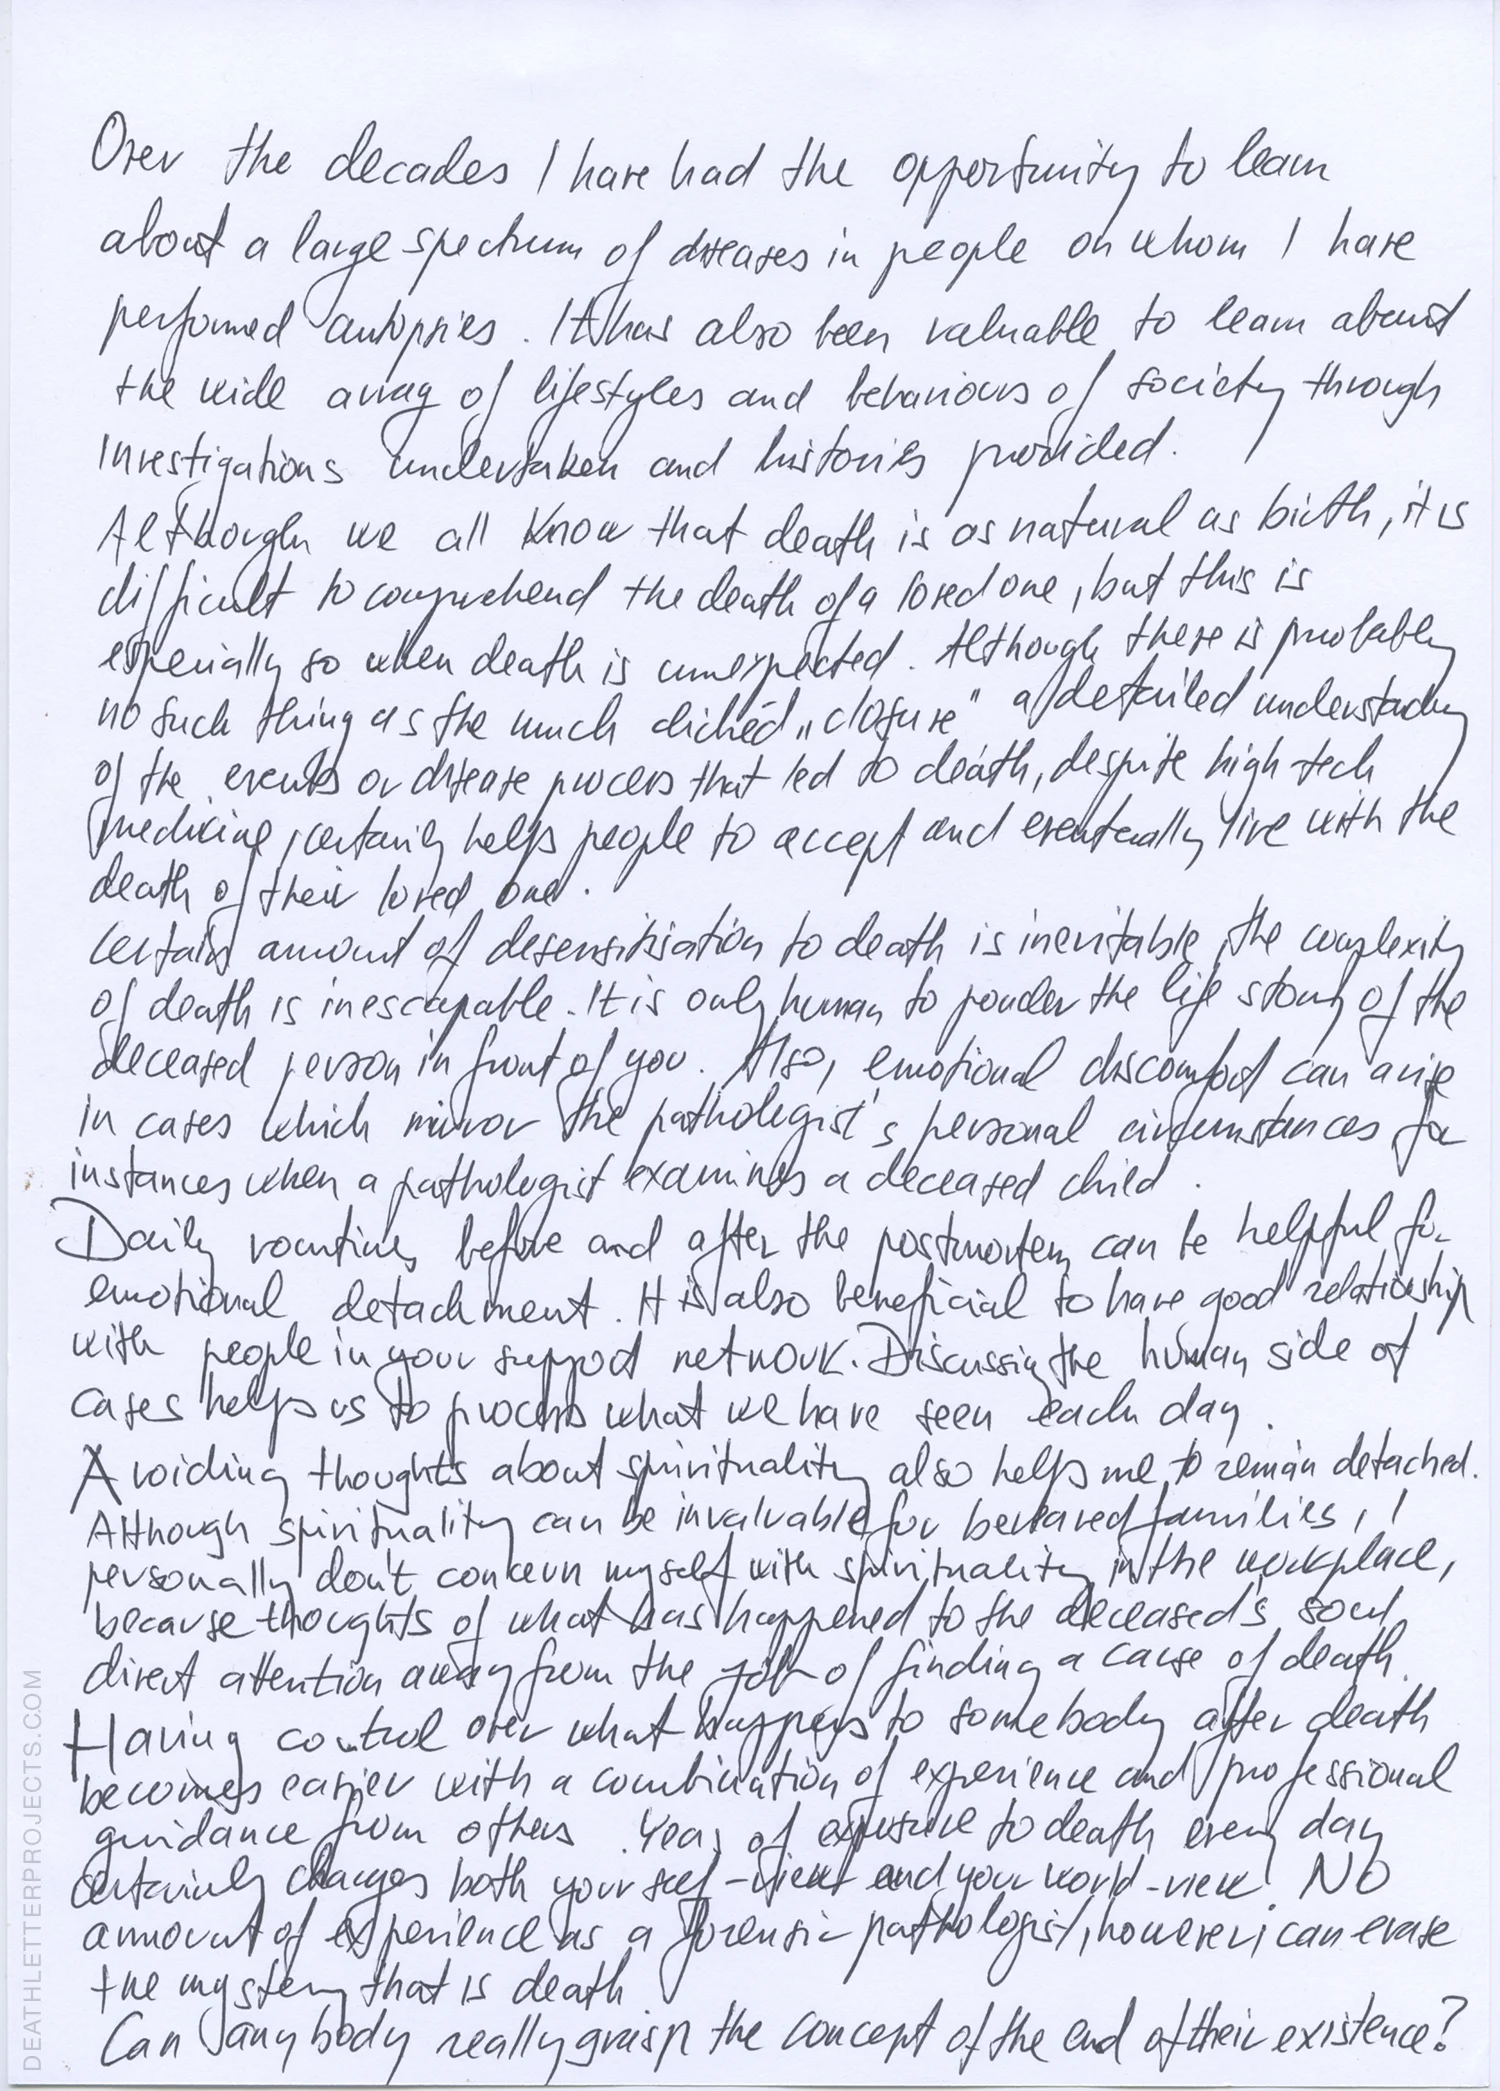 Over the decades I have had the opportunity to learn
about a large spectrum of diseases in people on whom I have
performed autopsies. It has also been valuable to learn about
the wide array of lifestyles and behaviours of society through
investigations undertaken and histories provided.
Although we all know that death is as natural as birth, it is
difficult to comprehend the death of a loved one, but this is
especially so when death is unexpected. Although there is probably
no such thing as the much clichéd „closure" a detailed understanding
of the events or disease process that led to death, despite high-tech
medicine, certainly helps people to accept and eventually live with the
death of their loved one.
Certain amount of desensitisation to death is inevitable, the complexity
of death is inescapable. It is only human to ponder the life story of the
deceased person in front of you. Also, emotional discomfort can arise
in cases which mirror the pathologist's personal circumstances for
instances when a pathologist examines a deceased child.
Daily routines before and after the postmortem can be helpful for
emotional detachment. It is also beneficial to have good relationship
with people in your support network. Discussing the human side of
cases helps us to process what we have seen each day.
Avoiding thoughts about spirituality also helps me to remain detached.
Although spirituality can be invaluable for bereaved families, I
personally don't concern myself with spirituality in the workplace,
because thoughts of what has happened to the deceased's soul
direct attention away from the job of finding a cause of death.
Having control over what happens to somebody after death
becomes easier with a combination of experience and professional
guidance from others. Years of exposure to death every day
certainly changes both your self-view and your world-view. No
amount of experience as a forensic pathologist, however, can erase
the mystery that is death
Can anybody really grasp the concept of the end of their existence?
DEATHLETTERPROJECTS.COM